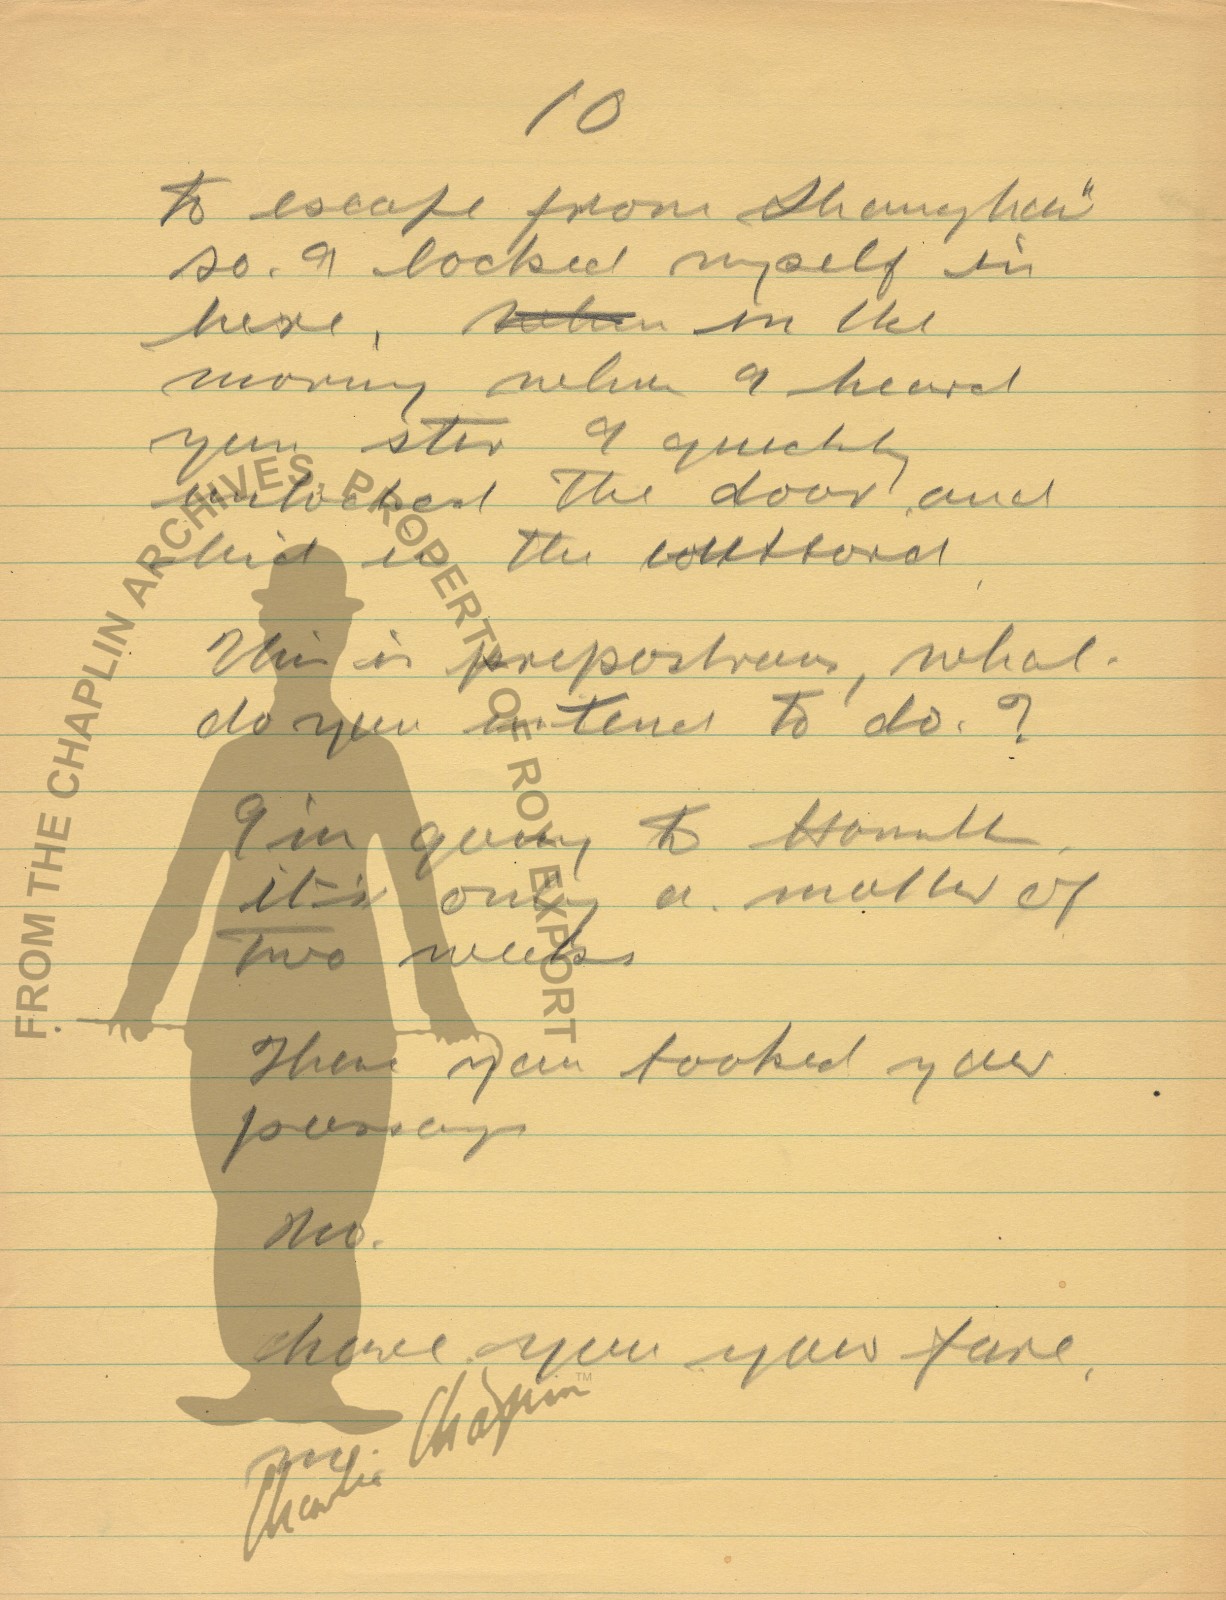 10
to escape from Shanghai"
so. I locked myself in
here, when in the
morning when I heard
you stir I quickly
unlocked the door and
hid in the
This is preposterous, what.
do you intend to do. ?
I'm going to
it's only a matter of
two weeks
Then you booked your
passage
No.
have you your fare,
no.
FROM THE CHAPLIN ARCHIVES. PROPERTY OF ROY EXPORT
Charlie Chaplin TM